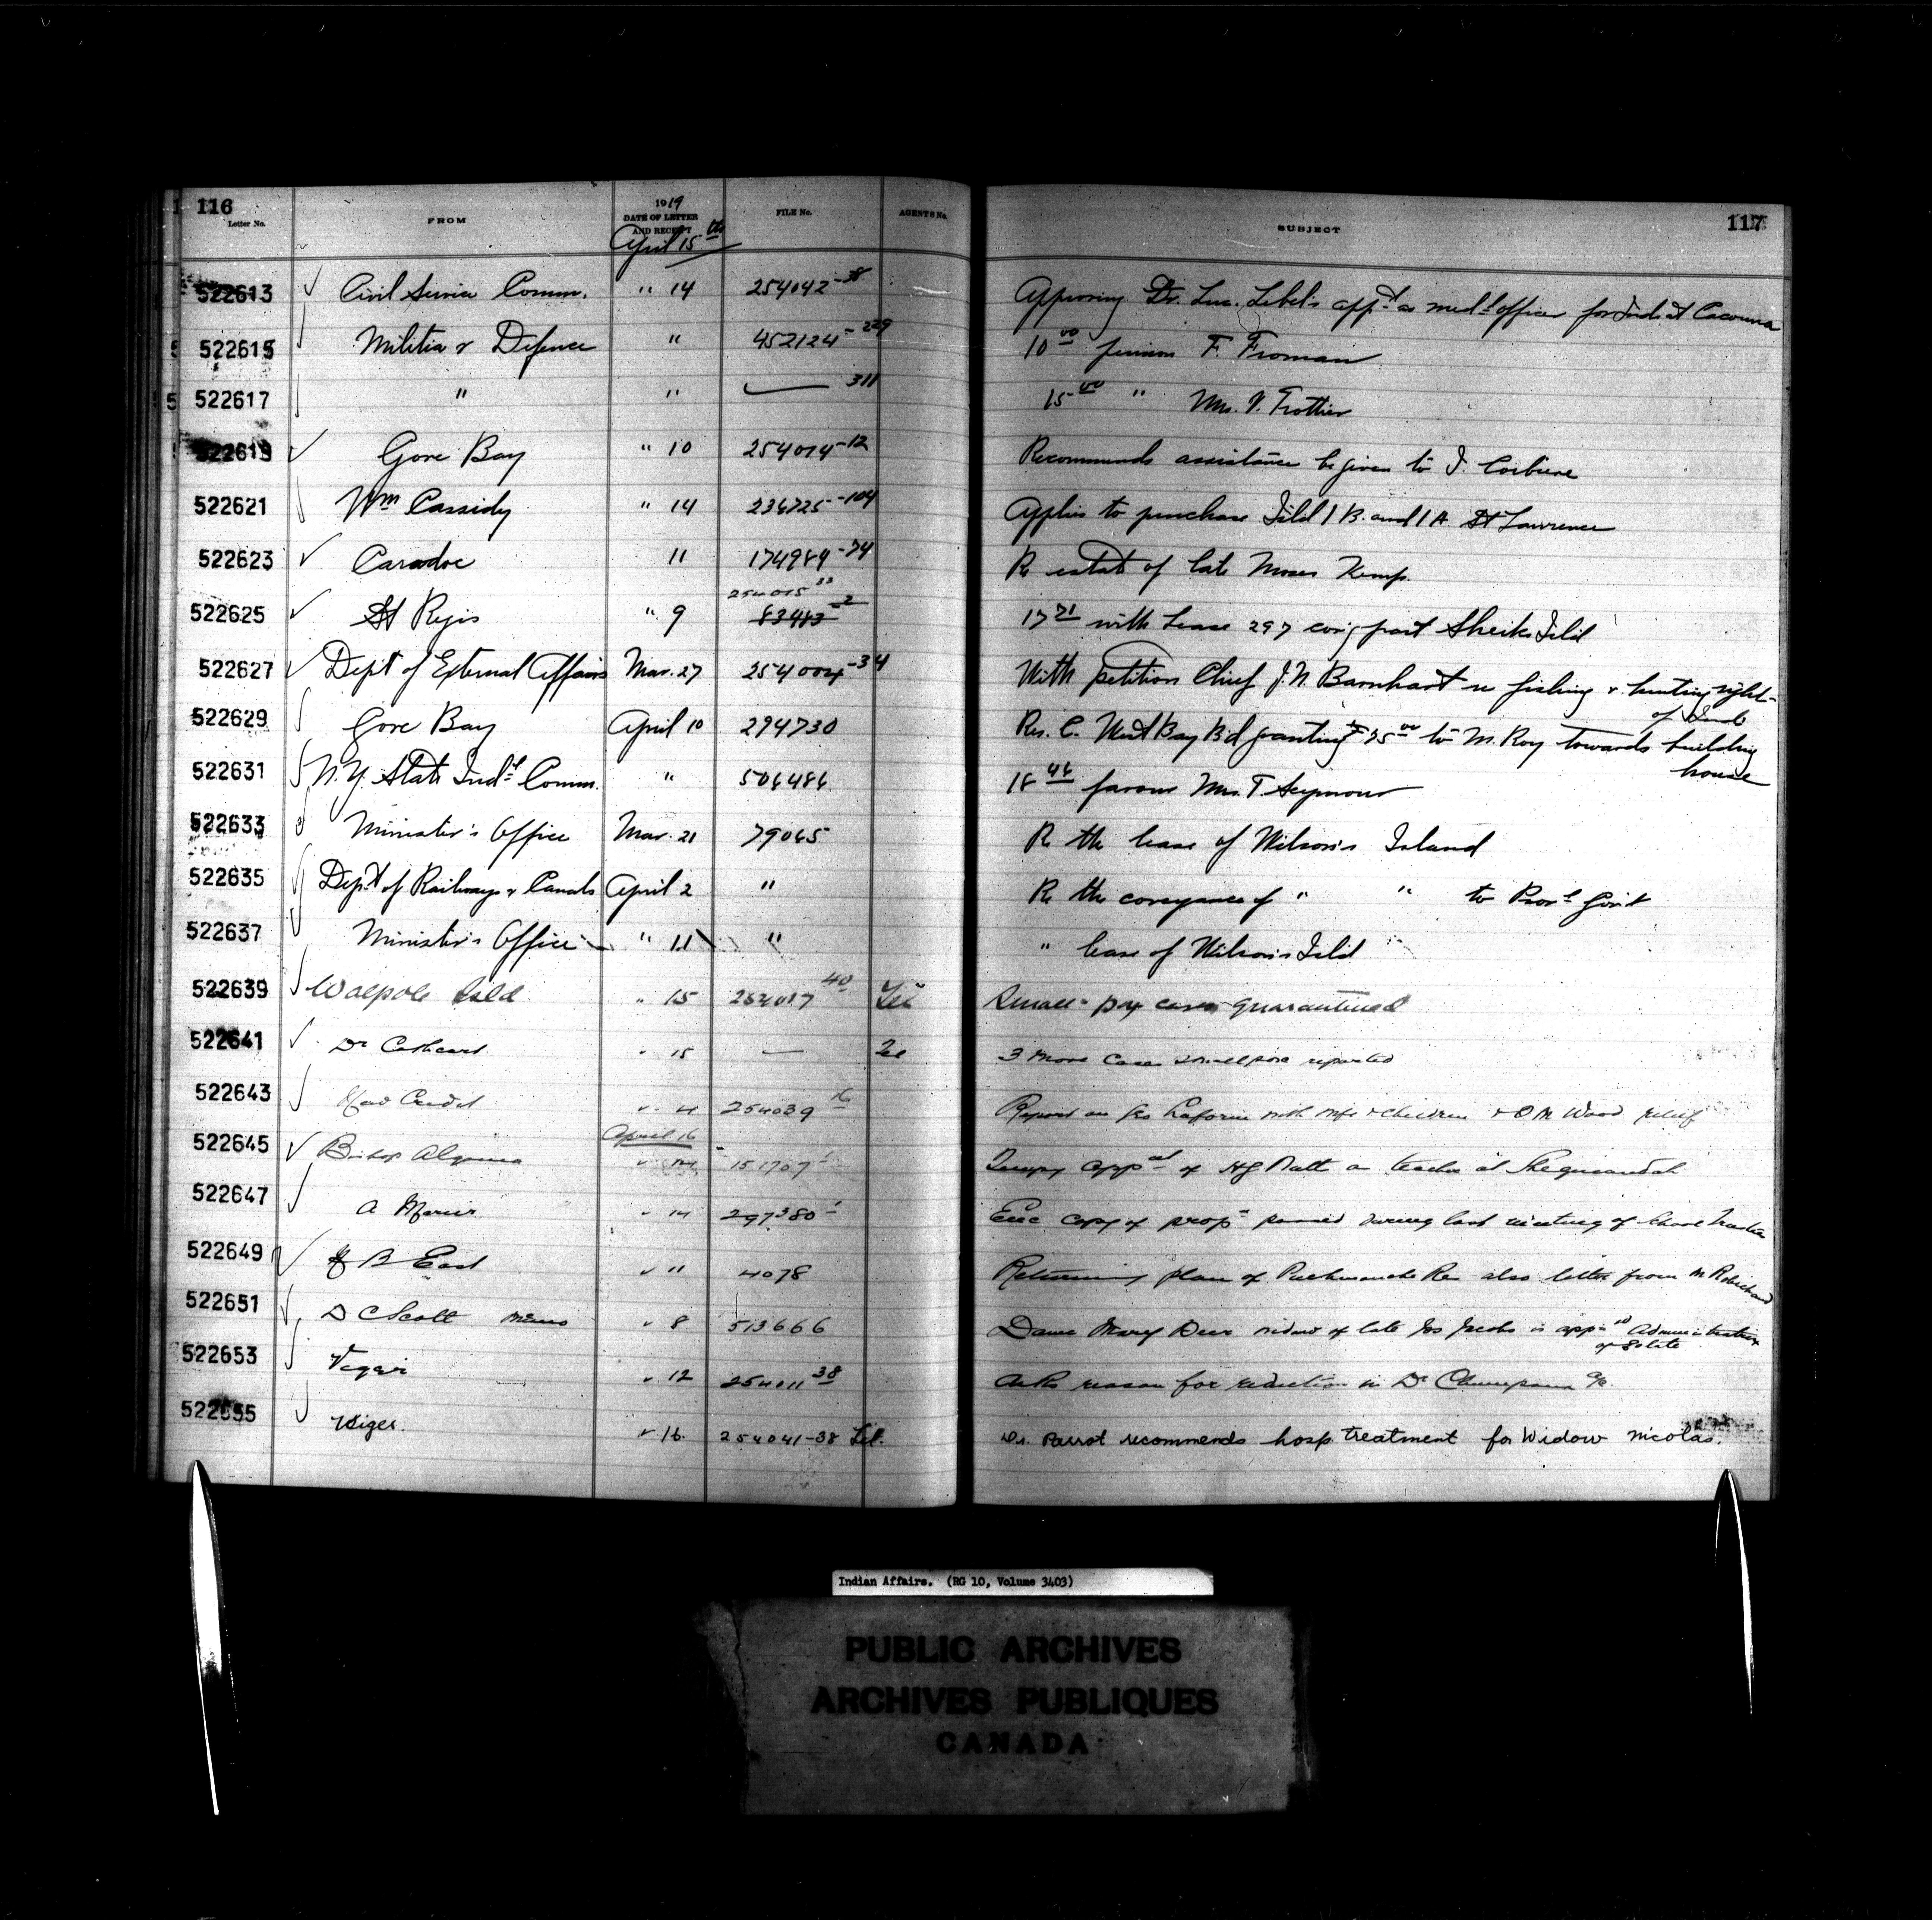 116
Letter No. FROM 1919 DATE OF LETTER AND RECEIPT FILE No. AGENTS No. SUBJECT 117
April 15th
522613 Civil Service Comm. " 14 254042-38 Approving Dr. Luc. Lebel's appt as medl officer for Inds at Cacouna
522615 Militia & Defence " 452124-229 10 00 pension F. Froman
522617 " " — 311 15 00 " Mrs. V. Trottier
522619 Gore Bay " 10 254014-12 Recommends assistance be given to J. Corbiere
522621 Wm Cassidy " 14 236725-104 Applies to purchase Isld 1 B. and 1 A. St Lawrence
522623 Caradoc 11 174984-74 Re estate of late Moses Kemp.
522625 St Regis " 9 254015 33 83483-2 17 71 with Lease 297 covg part Sheiks Isld
522627 Dept of External Affairs Mar. 27 254004-34 With petition Chief J. N. Barnhart re fishing & hunting rights
of Inds
522629 Gore Bay April 10 294730 Res. C. West Bay Bd granting $25 00 to M. Roy towards building
house
522631 N.Y. State Indl Comm. " 506486 18 46 favour Mrs. T. Seymour
522633 Minister's Office Mar. 21 79065 Re the lease of Wilson's Island
522635 Dept of Railways & Canals April 2 " Re the conveyance of " " to Provl Gov't
522637 Minister's Office " 11 " " lease of Wilson's Isld
522639 Walpole Isld " 15 254017 40 Tel Small-pox cases quarantined
522641 Dr Cathcart " 15 — Tel 3 more cases smallpox reported
522643 " 4 254039 16 Report on Jos Laforin with wife & children & O M Wood relief
April 16
522645 Bishop Algoma 151707 1 Tempy appt of H J Batt as teacher at Sheguiandah
522647 A " 14 297380 1 Enc copy of propn passed during last meeting of School Trustees
522649 B East " " 4078 Returning plan of Res also letter from M Robichaud
522651 D C Scott Memo " 8 513666 Dame Mary Deer widow of late Jos Jacobs is appd Administratrix
of Estate
522653 Viger " 12 254011 38 Asks reason for reduction in Dr a/c.
522655 Viger. " 16. 254041-38 Tel. Dr. Parrot recommends hosp. treatment for Widow Nicolas.
Indian Affairs. (RG 10, Volume 3403)
PUBLIC ARCHIVES
ARCHIVES PUBLIQUES
CANADA